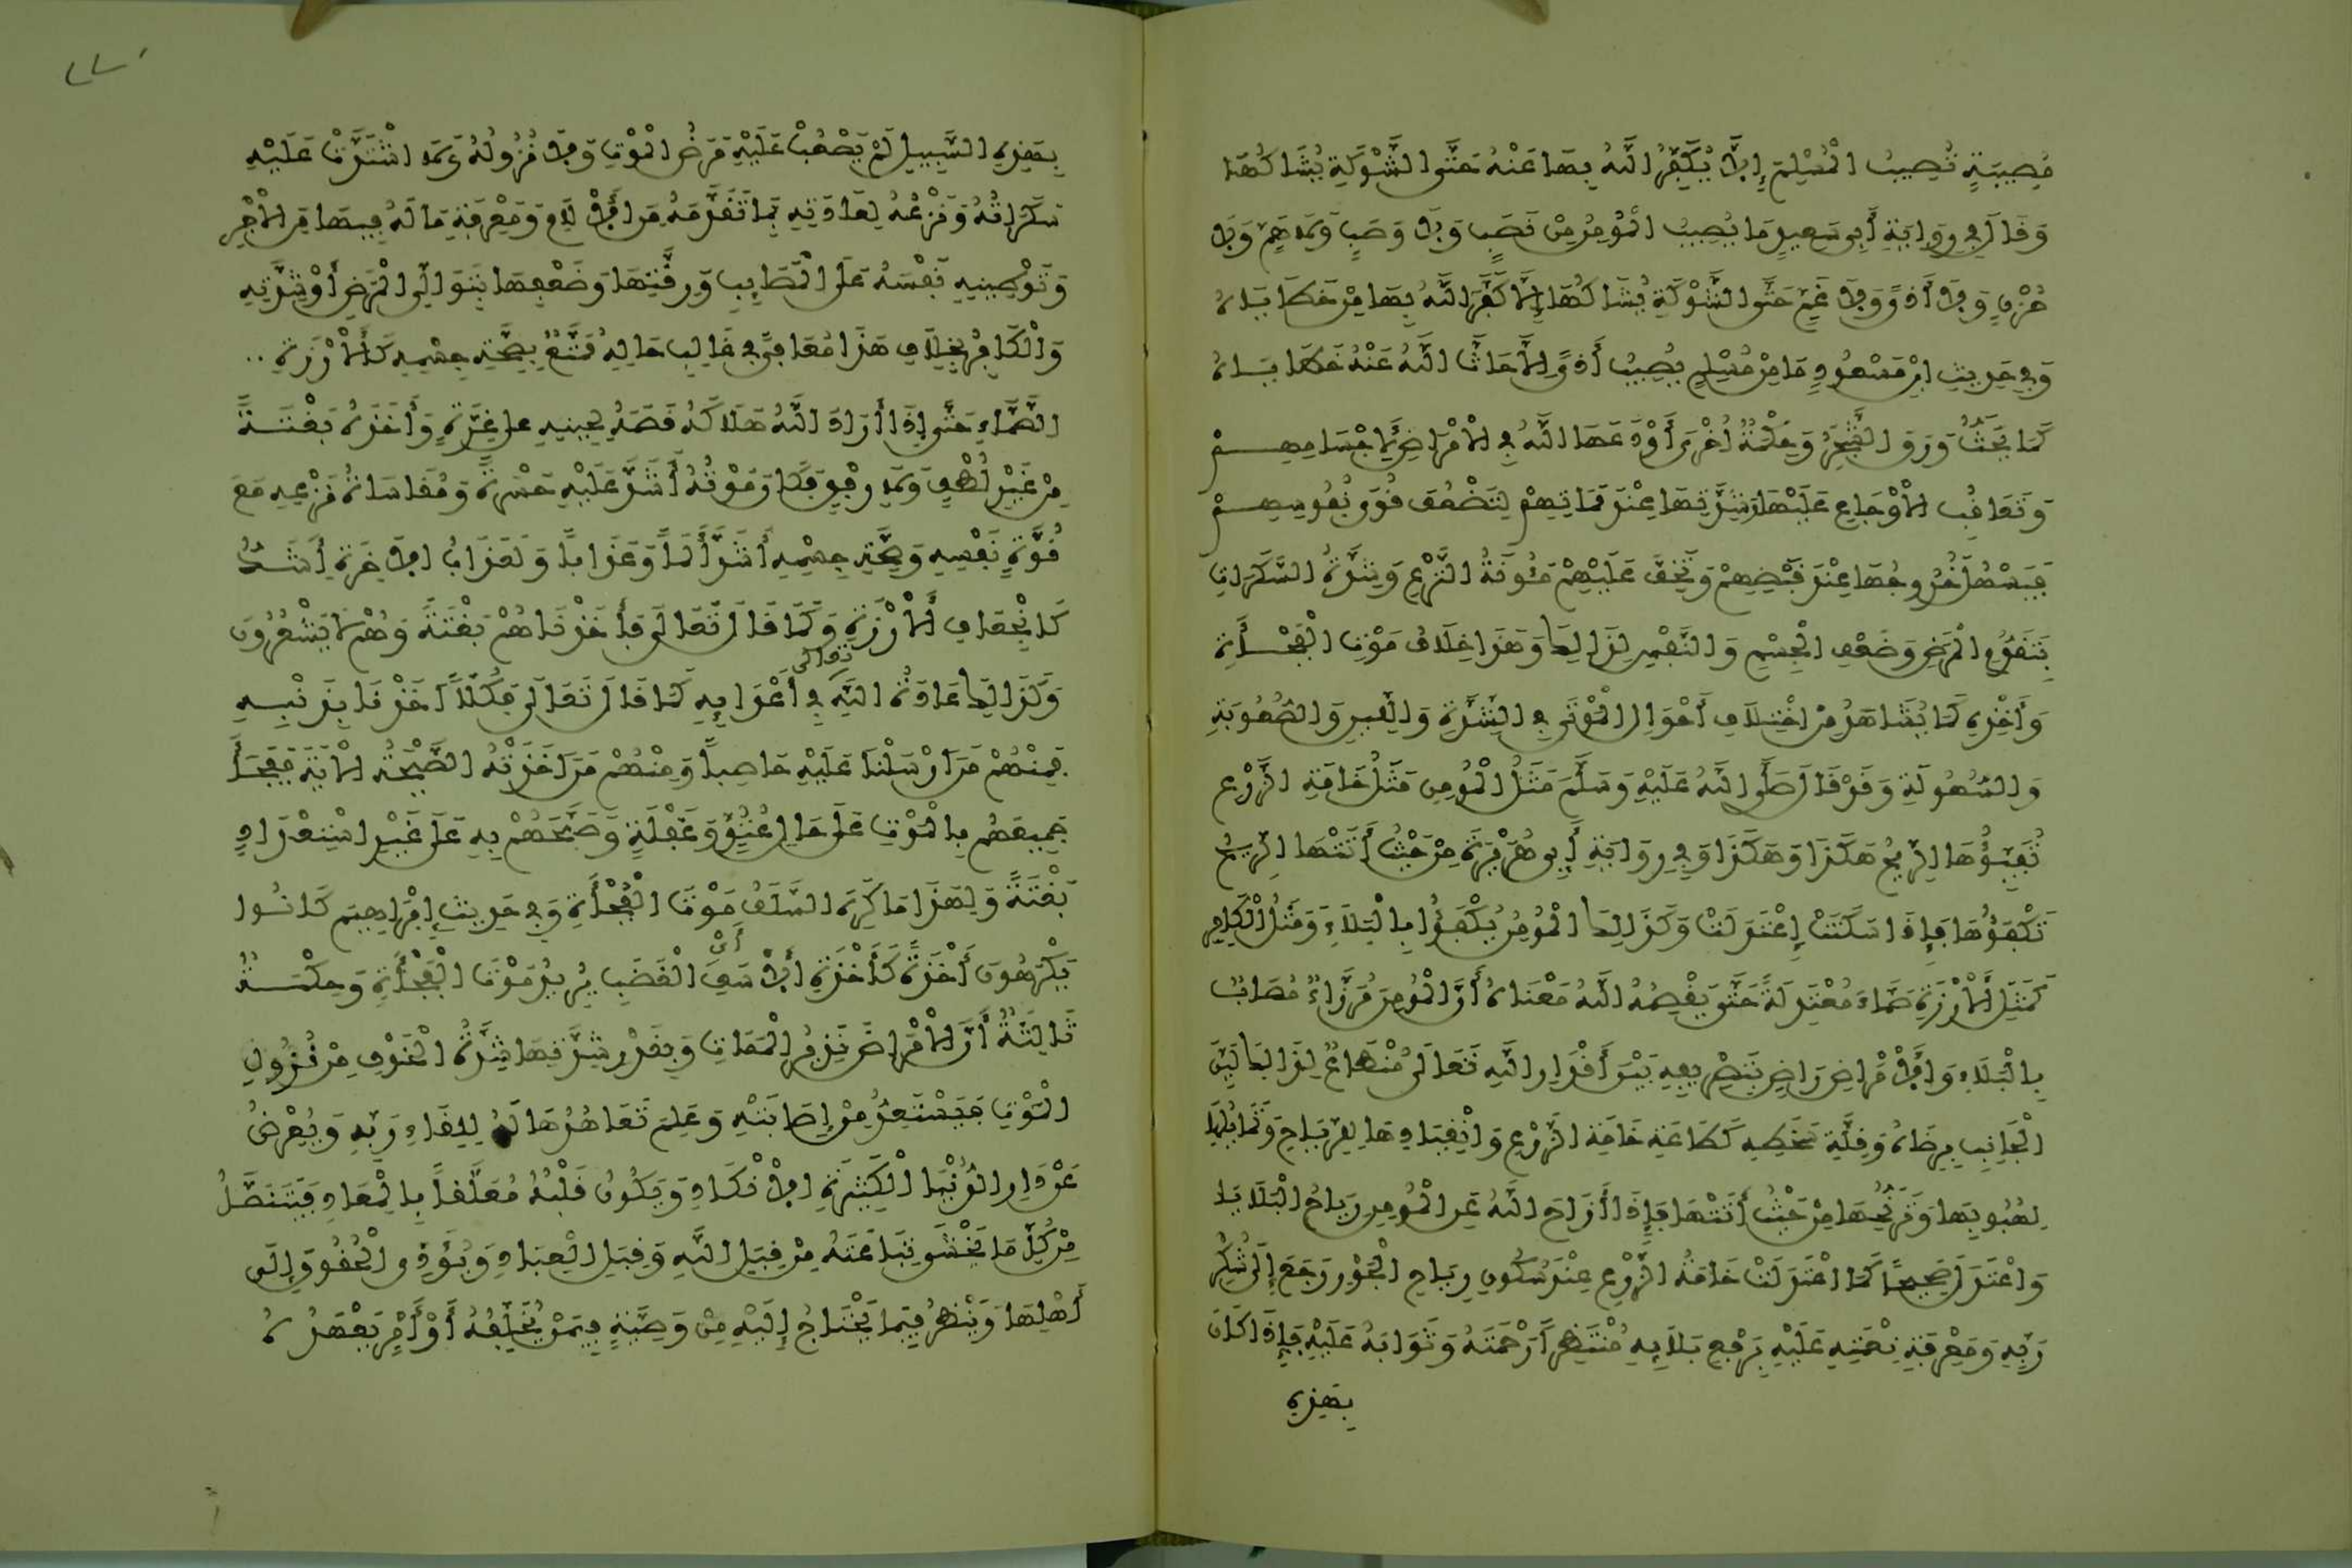 مُصِيبَةٍ تُصِيبُ الْمُسْلِمَ إِلَّا يُكَفِّرُ اللَّهُ بِهَا عَنْهُ حَتَّى الشَّوْكَةِ يُشَاكُهَا
وَقَالَ فِي رِوَايَةِ أَبِي سَعِيدٍ مَا يُصِيبُ الْمُؤْمِنَ مِنْ نَصَبٍ وَلَا وَصَبٍ وَلَا هَمٍّ وَلَا
حُزْنٍ وَلَا أَذًى وَلَا غَمٍّ حَتَّى الشَّوْكَةِ يُشَاكُهَا إِلَّا كَفَّرَ اللَّهُ بِهَا مِنْ خَطَايَاهُ
وَفِي حَدِيثِ ابْنِ مَسْعُودٍ مَا مِنْ مُسْلِمٍ يُصِيبُهُ أَذًى إِلَّا حَاتَّ اللَّهُ عَنْهُ خَطَايَاهُ
كَمَا يُحَتُّ وَرَقُ الشَّجَرِ وَحِكْمَةٌ أُخْرَى أَوْدَعَهَا اللَّهُ فِي الْأَمْرَاضِ لِأَجْسَامِهِمْ
وَتَعَاقُبُ الْأَوْجَاعِ عَلَيْهَا وَشِدَّتِهَا عِنْدَ مَمَاتِهِمْ لِتَضْعُفَ قُوَى نُفُوسِهِمْ
فَيَسْهُلَ خُرُوجُهَا عِنْدَ قَبْضِهِمْ وَتَخِفَّ عَلَيْهِمْ مَئُونَةُ النَّزْعِ وَشِدَّةُ السَّكَرَاتِ
بِتَقَدُّمِ الْمَرَضِ وَضَعْفِ الْجِسْمِ وَالنَّفْسِ لِذَلِكَ وَهَذَا خِلَافُ مَوْتِ الْفَجْأَةِ
وَأَخْذِهِ كَمَا يُشَاهَدُ مِنْ اخْتِلَافِ أَحْوَالِ الْمَوْتَى فِي الشِّدَّةِ وَاللِّينِ وَالصُّعُوبَةِ
وَالسُّهُولَةِ وَقَدْ قَالَ صَلَّى اللَّهُ عَلَيْهِ وَسَلَّمَ مَثَلُ الْمُؤْمِنِ مَثَلُ خَامَةِ الزَّرْعِ
تُفَيِّؤُهَا الرِّيحُ هَكَذَا وَهَكَذَا وَفِي رِوَايَةِ أَبِي هُرَيْرَةَ مِنْ حَيْثُ أَتَتْهَا الرِّيحُ
تَكْفَؤُهَا فَإِذَا سَكَنَتْ إِعْتَدَلَتْ وَكَذَلِكَ الْمُؤْمِنُ يُكْفَؤُا بِالْبَلَاءِ وَمَثَلُ الْكَافِرِ
كَمَثَلِ الْأَرْزَةِ صَمَّاءَ مُعْتَدِلَةً حَتَّى يَقْصِمَهُ اللَّهُ مَعْنَاهُ أَنَّ الْمُؤْمِنَ مُرَزَّاءٌ مُصَابٌ
بِالْبَلَاءِ وَالْأَمْرَاضِ رَاضٍ بِتَصْرِيفِهِ بَيْنَ أَقْدَارِ اللَّهِ تَعَالَى مُنْطَاعٌ لِذَلِكَ لَيِّنُ
الْجَانِبِ بِرِضَاهُ وَقِلَّةِ سَخَطِهِ كَطَاعَةِ خَامَةِ الزَّرْعِ وَانْقِيَادِهَا لِلرِّيَاحِ وَتَمَايُلِهَا
لِهُبُوبِهَا وَتَرَنُّحِهَا مِنْ حَيْثُ أَتَتْهَا فَإِذَا أَزَاحَ اللَّهُ عَنِ الْمُؤْمِنِ رِيَاحَ الْبَلَايَا
وَاعْتَدَلَ صَحِيحًا كَمَا اعْتَدَلَتْ خَامَةُ الزَّرْعِ عِنْدَ سُكُونِ رِيَاحِ الْجَوِّ رَجَعَ إِلَى شُكْرِ
رَبِّهِ وَمَعْرِفَةِ نِعْمَتِهِ عَلَيْهِ بِرَفْعِ بَلَائِهِ مُنْتَظِرًا رَحْمَتَهُ وَثَوَابَهُ عَلَيْهِ فَإِذَا كَانَ
بِهَذِهِ
بِهَذِهِ السَّبِيلِ لَمْ يَصْعُبْ عَلَيْهِ مَرَضُ الْمَوْتِ وَلَا نُزُولُهُ وَلَا اشْتَدَّتْ عَلَيْهِ
سَكَرَاتُهُ وَنَزْعُهُ لِعَادَتِهِ بِمَا تَقَدَّمَهُ مِنَ الْآلَامِ وَمَعْرِفَةِ مَا لَهُ فِيهَا مِنَ الْأَجْرِ
وَتَوْطِينِهِ نَفْسَهُ عَلَى الْمَصَائِبِ وَرِقَّتِهَا وَضَعْفِهَا بِتَوَالِي الْمَرَضِ أَوْ شِدَّتِهِ
وَالْكَافِرُ بِخِلَافِ هَذَا مُعَافًى فِي غَالِبِ حَالِهِ مُمَتَّعٌ بِصِحَّةِ جِسْمِهِ كَالْأَرْزَةِ ..
الصَّمَّاءِ حَتَّى إِذَا أَرَادَ اللَّهُ هَلَاكَهُ قَصَمَهُ لِحِينِهِ عَلَى غِرَّةٍ وَأَخَذَهُ بَغْتَةً
مِنْ غَيْرِ لُطْفٍ وَلَا رِفْقٍ فَكَانَ مَوْتُهُ أَشَدَّ عَلَيْهِ حَسْرَةً وَمُقَاسَاةُ نَزْعِهِ مَعَ
قُوَّةِ نَفْسِهِ وَصِحَّةِ جِسْمِهِ أَشَدَّ أَلَمًا وَعَذَابًا وَلَعَذَابُ الْآخِرَةِ أَشَدُّ
كَانْجِعَافِ الْأَرْزَةِ وَكَمَا قَالَ تَعَالَى فَأَخَذْنَاهُمْ بَغْتَةً وَهُمْ لَا يَشْعُرُونَ
وَكَذَلِكَ عَادَةُ اللَّهِ تعالى فِي أَعْدَائِهِ كَمَا قَالَ تَعَالَى فَكُلًّا أَخَذْنَا بِذَنْبِهِ
فَمِنْهُمْ مَنْ أَرْسَلْنَا عَلَيْهِ حَاصِبًا وَمِنْهُمْ مَنْ أَخَذَتْهُ الصَّيْحَةُ الْآيَةَ فَفَجَأَ
جَمِيعَهُمْ بِالْمَوْتِ عَلَى حَالِ عُتُوٍّ وَغَفْلَةٍ وَصَبَّحَهُمْ بِهِ عَلَى غَيْرِ اسْتِعْدَادٍ
بَغْتَةً وَلِهَذَا مَا كَرِهَ السَّلَفُ مَوْتَ الْفُجْأَةِ وَفِي حَدِيثِ إِبْرَاهِيمَ كَانُوا
يَكْرَهُونَ أَخْذَةً كَأَخْذَةِ الْأَسَفِ أَيْ الْغَضَبِ يُرِيدُ مَوْتَ الْفَجْأَةِ وَحِكْمَةٌ
ثَالِثَةٌ أَنَّ الْأَمْرَاضَ نَذِيرُ الْمَمَاتِ وَبِقَدْرِ شِدَّتِهَا شِدَّةُ الْخَوْفِ مِنْ نُزُولِ
الْمَوْتِ فَيَسْتَعِدُّ مَنْ إِصَابَتْهِ وَعَلِمَ تَعَاهُدَهَا لَهُ لِلِقَاءِ رَبِّهِ وَيُعْرِضُ
عَنْ دَارِ الدُّنْيَا الْكَثِيرَةِ الْأَنْكَادِ وَيَكُونُ قَلْبُهُ مُعَلَّقًا بِالْمَعَادِ فَيَتَنَصَّلُ
مِنْ كُلِّ مَا يَخْشَى تِبَاعَتَهُ مِنْ قِبَلِ اللَّهِ وَقِبَلِ الْعِبَادِ وَيُؤَدِّي الْحُقُوقَ إِلَى
أَهْلِهَا وَيَنْظُرُ فِيمَا يَحْتَاجُ إِلَيْهِ مِنْ وَصِيَّةٍ فِيمَنْ يُخَلِّفُهُ أَوْ أَمْرٍ يَعْهَدُهُ